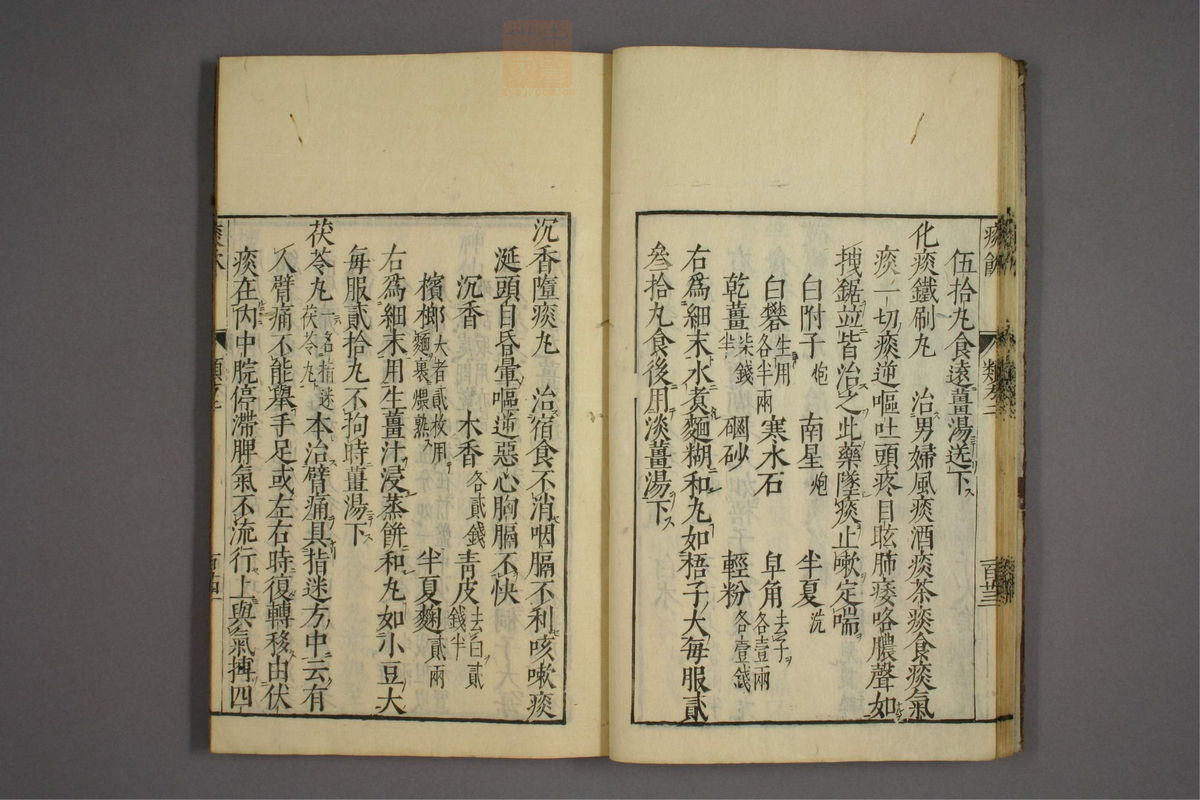 伍拾丸食遠薑湯送下
化痰鐵刷丸　治男婦風痰酒痰茶痰食痰氣
痰一切痰逆嘔吐頭疼目眩肺痿咯膿聲如
拽鋸並皆治之此藥墜痰止嗽定喘
白附子炮　南星炮　半夏洗
白礬生用各半兩　寒水石　皁角去子各壹兩
乾薑柒錢半　硇砂　輕粉各壹錢
右爲細末水煮麵糊和丸如梧子大每服貳
叄拾丸食後用淡薑湯下
沉香墮痰丸　治宿食不消咽膈不利咳嗽痰
涎頭目昏暈嘔逆惡心胸膈不快
沉香　木香各貳錢　青皮去白貳錢半
檳榔大者貳枚用麵裹煨熟　半夏麴貳兩
右爲細末用生薑汁浸蒸餅和丸如小豆大
每服貳拾丸不拘時薑湯下
茯苓丸一名指迷茯苓丸　本治臂痛具指迷方中云有
人臂痛不能舉手足或左右時復轉移由伏
痰在内中脘停滯脾氣不流行上與氣搏四